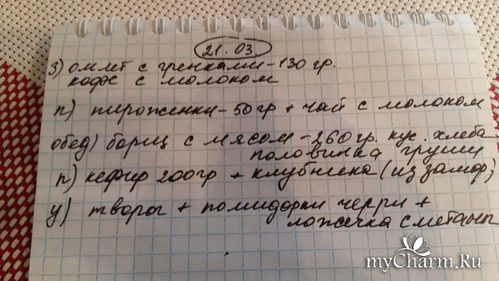 21.03
з) омлет с гренками-130 гр.
кофе с молоком
п) пирожении-50гр + чай с молоком
обед) борщ с мясом-260гр. кус. хлеба
половинка груши
п) кефир 200гр + клубника (из замор)
у) творог + помидорки черри +
ложечка сметаны
myCharm.Ru